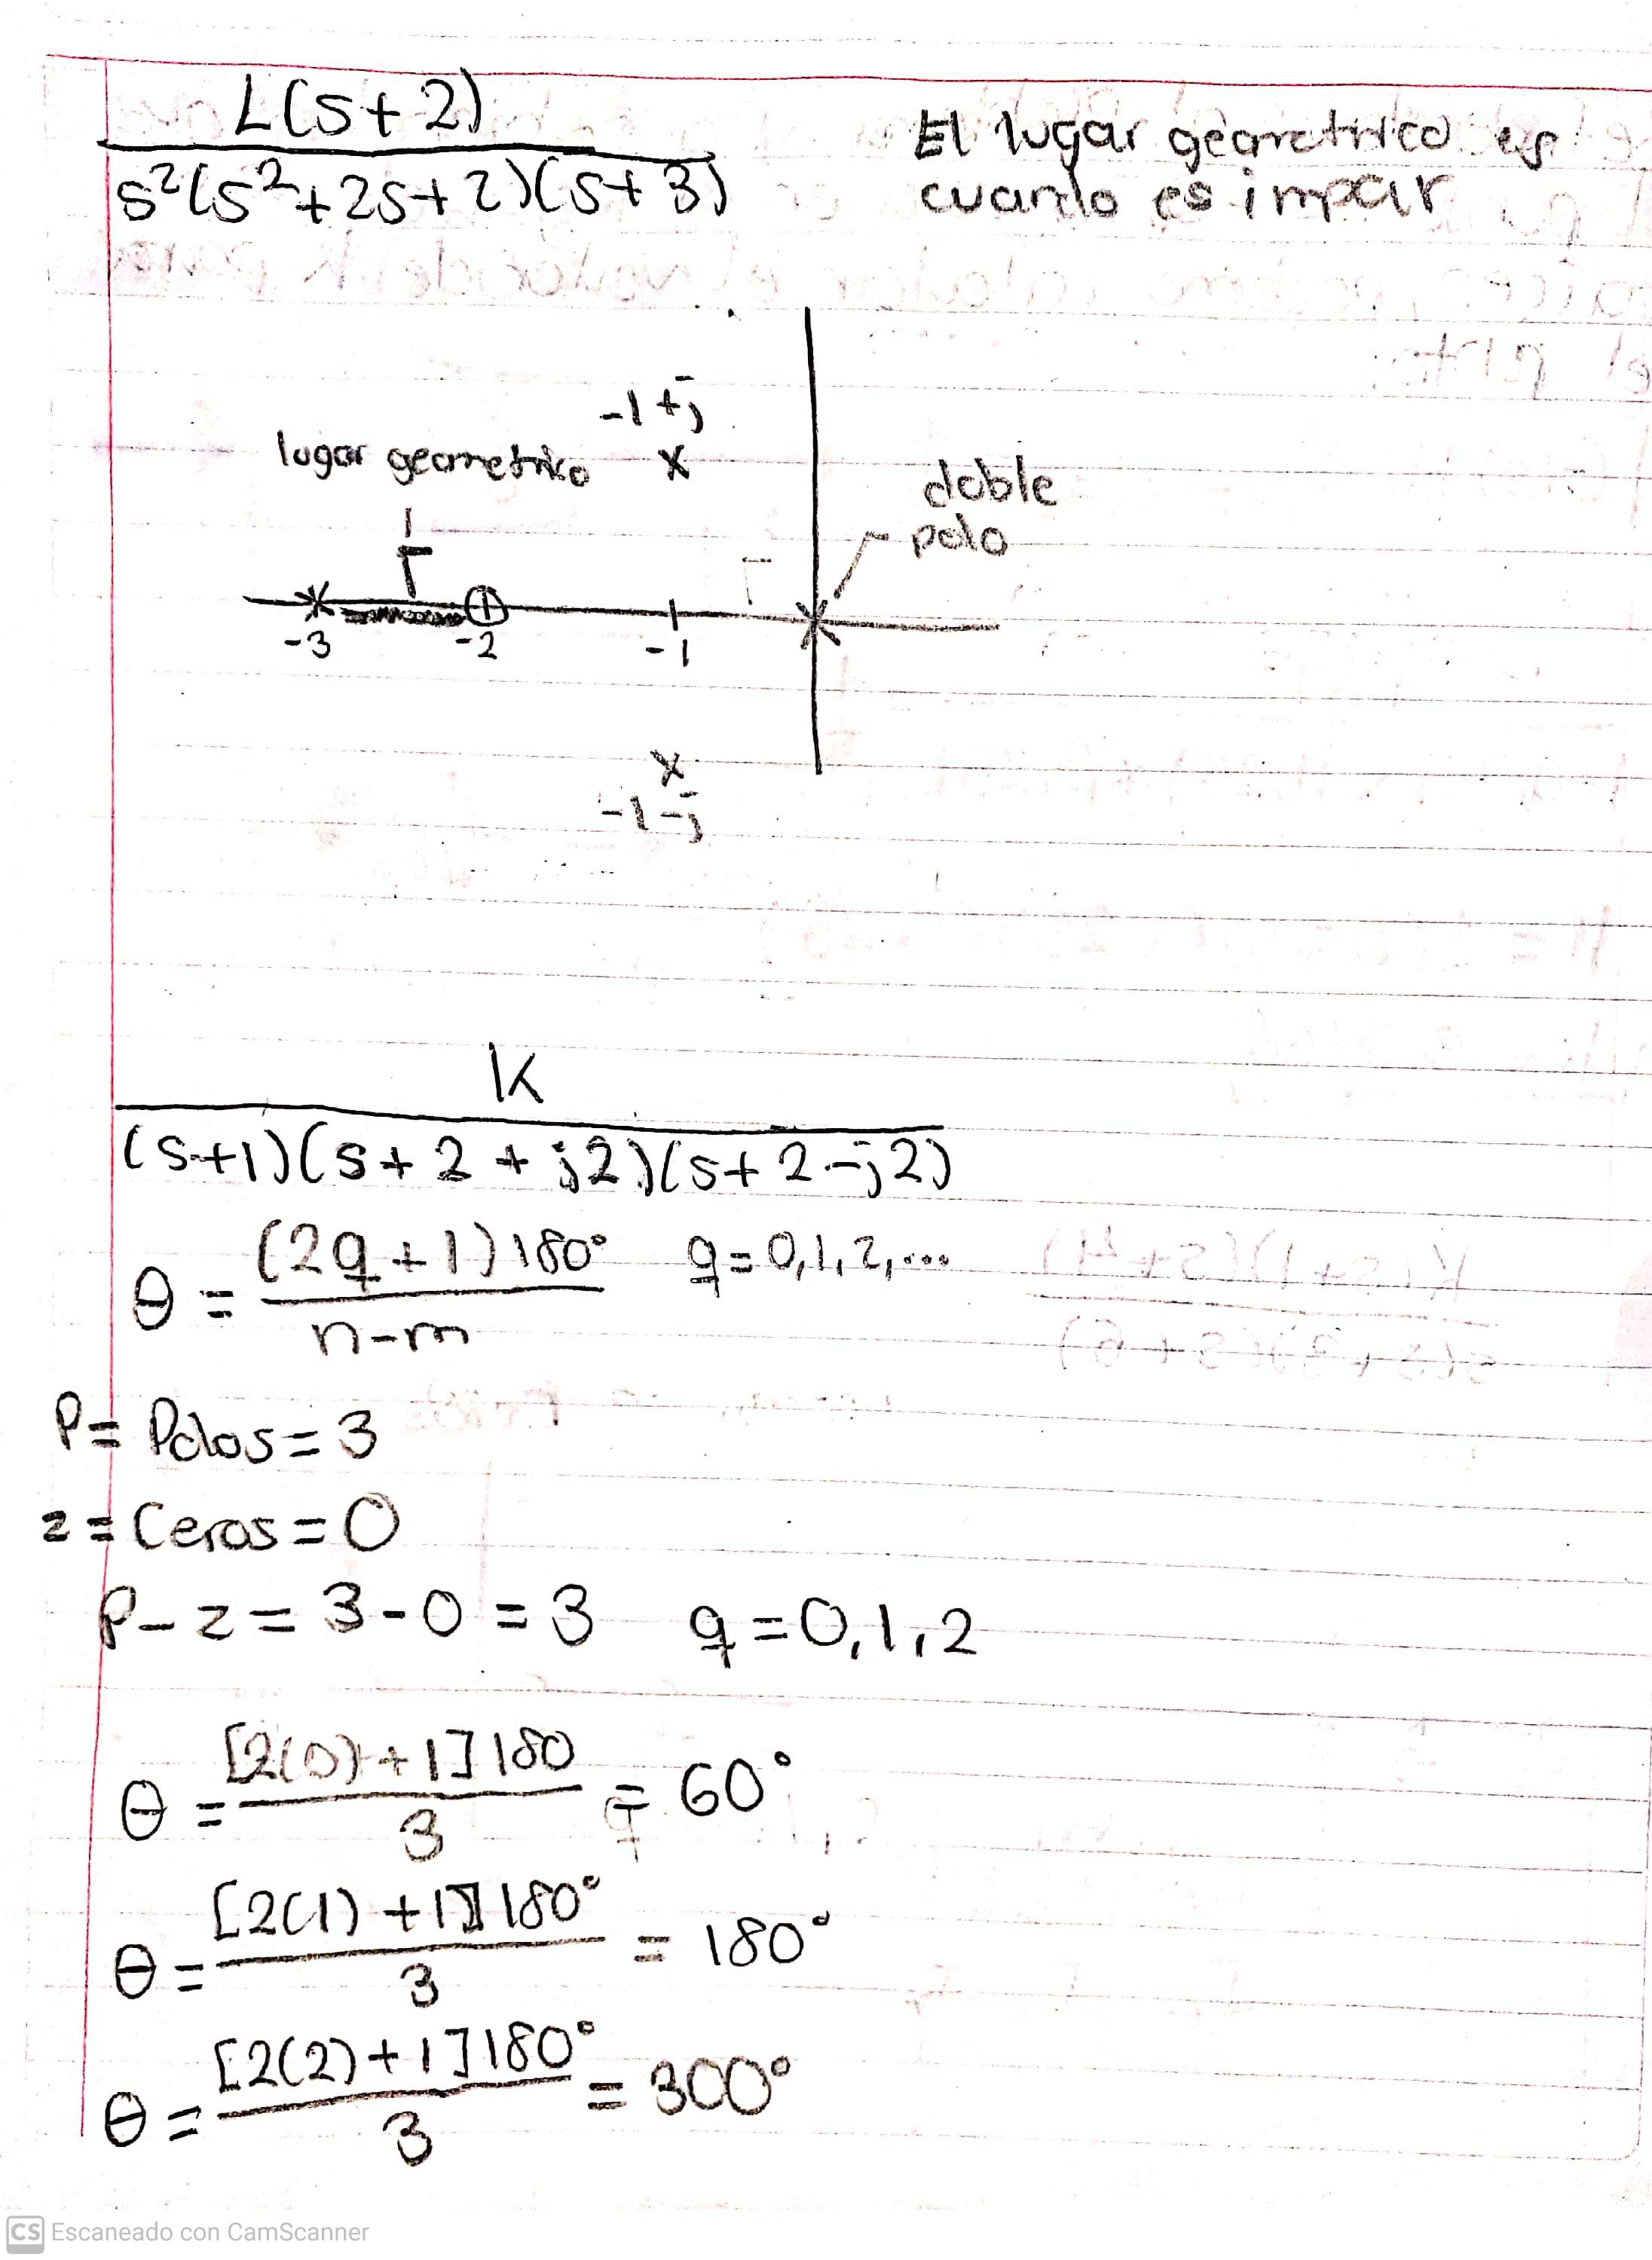 L(s+2)
s²(s²+2s+2)(s+3)
El lugar geometrico es
cuando es impar
-1+j
x
lugar geometrico
doble
polo
-3
-2
-1
x
-1-j
K
(s+1)(s+2+j2)(s+2-j2)
θ = (2q+1)180° / n-m q=0,1,2,...
P= Polos=3
z= Ceros=0
P-z=3-0=3 q=0,1,2
θ = [2(0)+1]180 / 3 = 60°
θ= [2(1)+1]180° / 3 = 180°
θ= [2(2)+1]180° / 3 = 300°
CS Escaneado con CamScanner